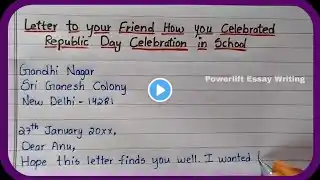 Letter to your Friend How you Celebrated
Republic Day Celebration in School
Gandhi Nagar
Powerlift Essay Writing
Sri Ganesh Colony
New Delhi - 14281
27th January 20xx,
Dear Anu,
Hope this letter finds you well. I wanted